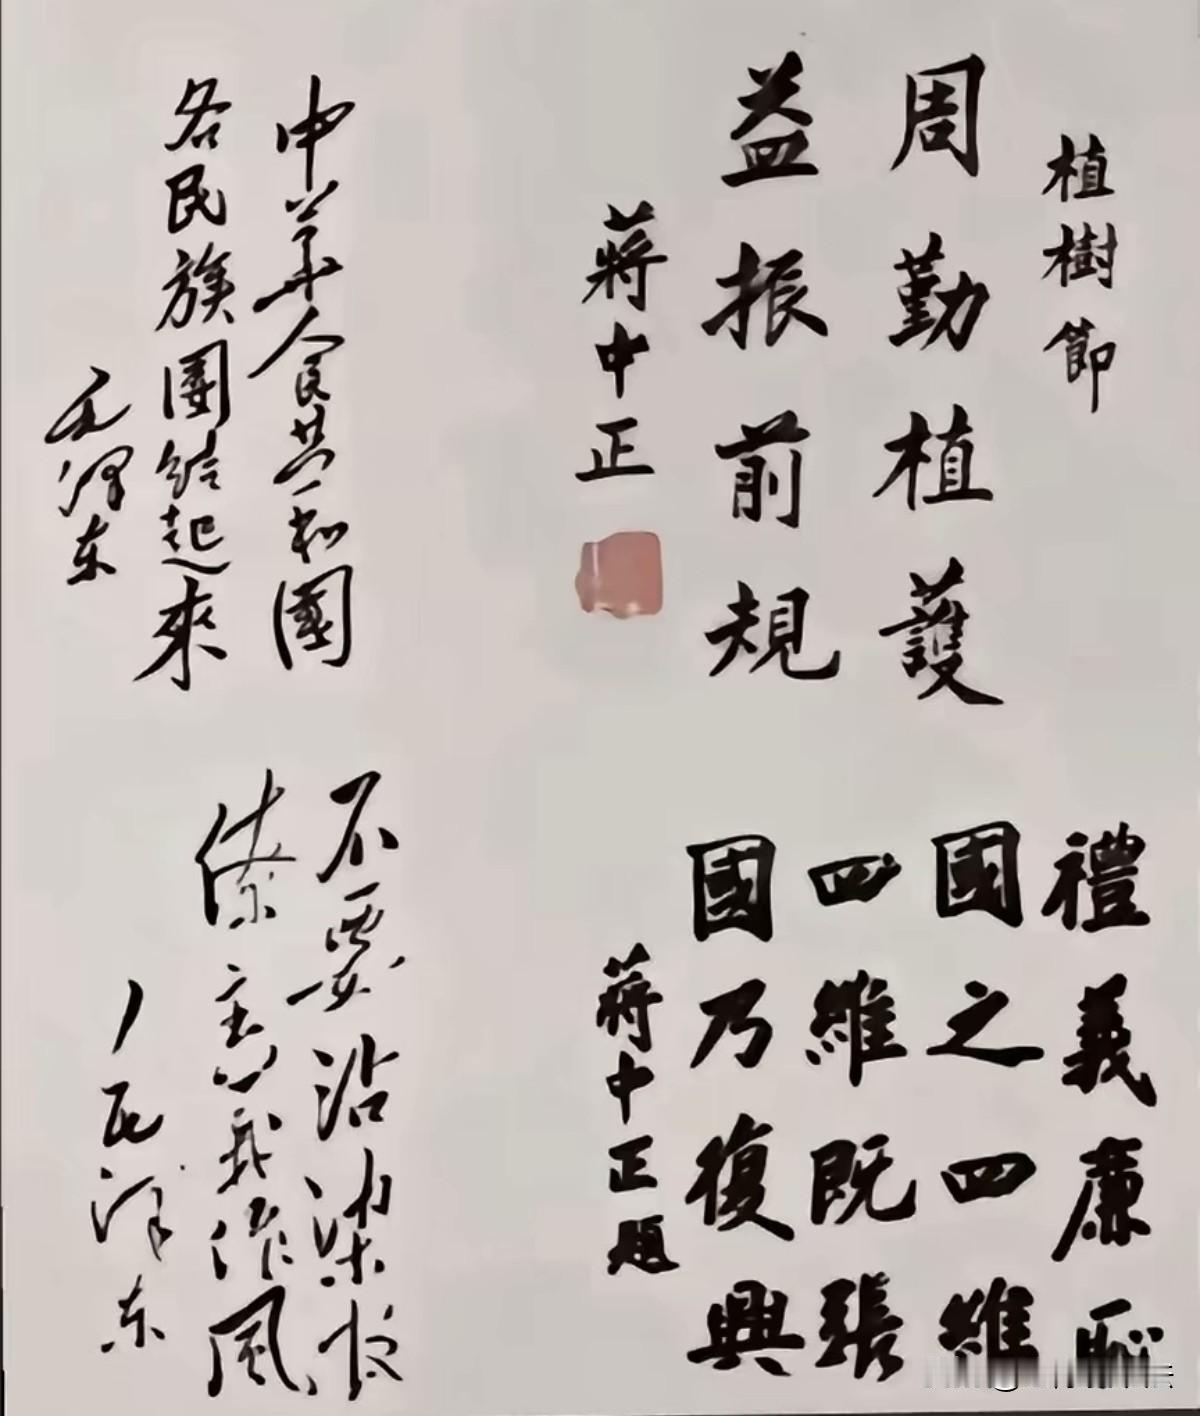 植樹節
周勤植護
益振前規
蔣中正
禮義廉恥
國之四維
四維既張
國乃復興
蔣中正題
中華人民共和國
各民族團結起來
毛泽东
不要沾染官
僚主義作風
毛泽东